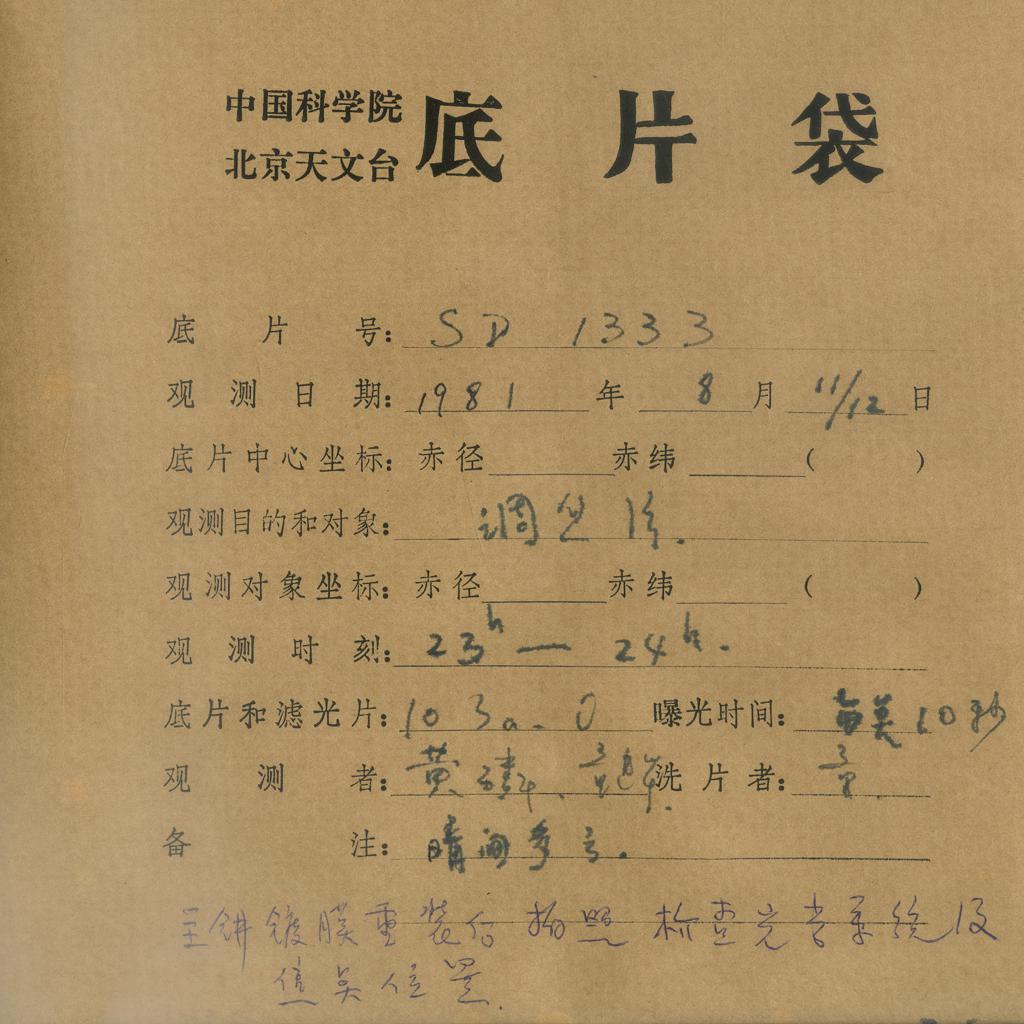 中国科学院
北京天文台
底片袋
底片号: SD 1333
观测日期: 1981 年 8 月 11/12 日
底片中心坐标: 赤径 赤纬 ( )
观测目的和对象: 调
观测对象坐标: 赤径 赤纬 ( )
观测时刻: 23h — 24h.
底片和滤光片: 103a-O 曝光时间: 10秒
观测者: 黄磷、 洗片者:
备注: 晴间多云.
主镜镀膜重装后拍照 检查光学系统及
焦点位置.